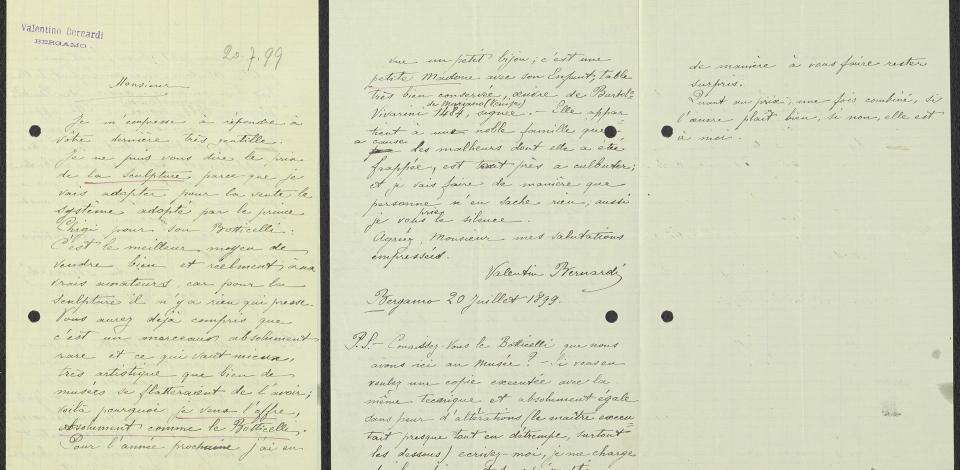 Valentino Bernardi
BERGAMO.
20.7.99
Monsieur
Je m'empesse à répondre à
vôtre dernière très gentille.
Je ne puis vous dire le prix
de la sculpture parce que je
vais adopter pour la vente le
système adopté par le prince
Chigi pour son Botticelli.
C'est le meilleur moyen de
vendre bien et réelment à
vrais amateurs, car pour la
sculpture il n'y a rien qui presse.
Vous aurez déjà compris que
c'est un morceaux absolument
rare et ce qui vaut mieux,
très artistique que bien de
musées se flatteraient de l'avoir;
voilà pourquoi je vous l'offre,
absolument comme le Botticelli.
Pour l'année prochaine j'ai en
vue un petit bijou; c'est une
petite Madone avec son Enfant, table
très bien conservée, œuvre de Bartol.
de Murano (Venise)
Vivarini 1484, signée. - Elle appar
tient a une noble famille que
a cause des malheurs dont elle a été
frappée, est tout près a culbuter;
et je vais faire de manière que
personne n'en sache rien, aussi
je vous prie le silence.
Agréez, Monsieur mes salutations
empressées.
Valentin Bernardi
Bergamo 20 Juillet 1899.
P.S. - Conaissez-Vous le Botticelli que nous
avons ici au Musée? - Si vous en
voulez une copie executée avec la
même tecnique et absolument égale
sans peur d'altérations (le maître execu
tait presque tout en détrempe, surtout
les dessous) ecrivez-moi, je me charge
de manière à vous faire rester
surpris.
Quant au prix, une fois combiné, si
l'œuvre plaît bien; si non, elle est
à moi.